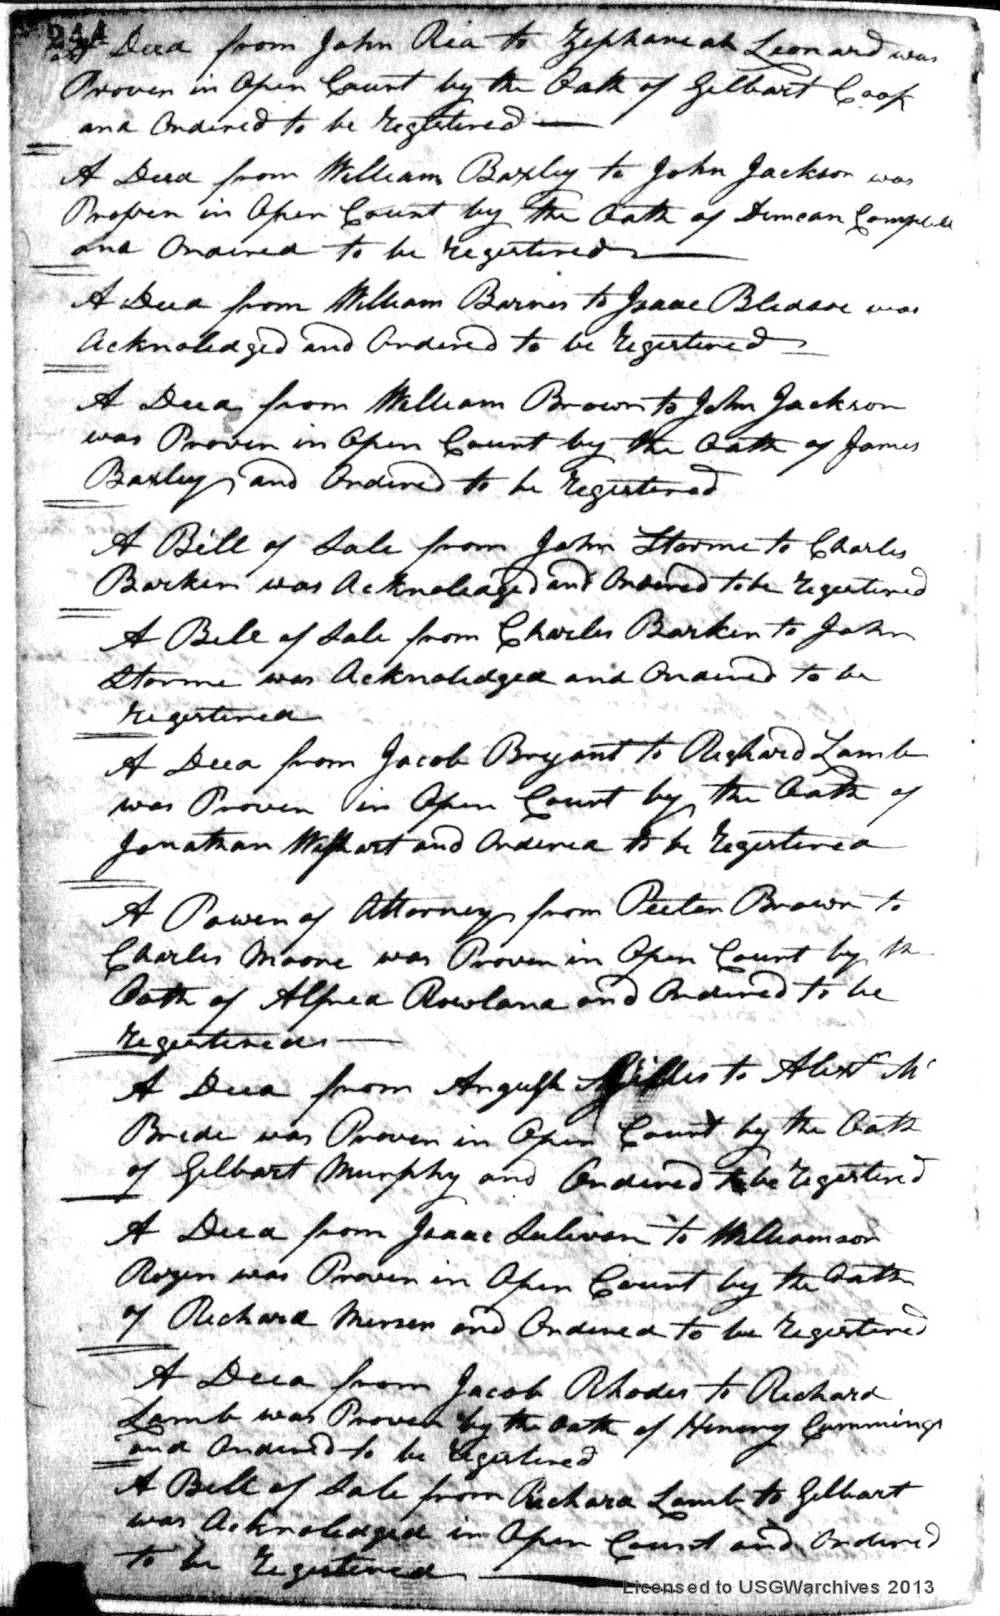 244
A Deed from John Ria to Zephaneah Leonard was
Proven in Open Court by the Oath of Gilbart Coop
and Ordered to be Registered
A Deed from William Baxley to John Jackson was
Proven in Open Court by the Oath of Duncan Campbell
and Ordered to be Registered
A Deed from William Barnes to Isaac Bledsoe was
Acknoledged and Ordered to be Registered
A Deed from William Brown to John Jackson
was Proven in Open Court by the Oath of James
Baxley and Ordered to be Registered
A Bill of Sale from John Storme to Charles
Barker was Acknoleaged and Ordered to be Registered
A Bill of Sale from Charles Barker to John
Storme was Acknoledged and Ordered to be
Registered
A Deed from Jacob Bryant to Richard Lamb
was Proven in Open Court by the Oath of
Jonathan Wishart and Ordered to be Registered
A Power of Attorney from Peeter Brown to
Charles Moore was Proven in Open Court by th
Oath of Alfred Rowland and Ordered to be
Registered
A Deed from Angush to Alexr Mc
Bride was Proven in Open Court by the Oath
of Gilbart Murphy and Ordered to be Registered
A Deed from Isaac Sulivan to Williamson
Rozer was Proven in Open Court by the Oath
of Richard Mercer and Ordered to be Registered
A Deed from Jacob Rhodes to Richard
Lamb was Proven by the Oath of Henery Cummings
and Ordered to be Registered
A Bill of Sale from Richard Lamb to Gilbart
was Acknoledged in Open Court and Ordered
to be Registered
Licensed to USGWarchives 2013